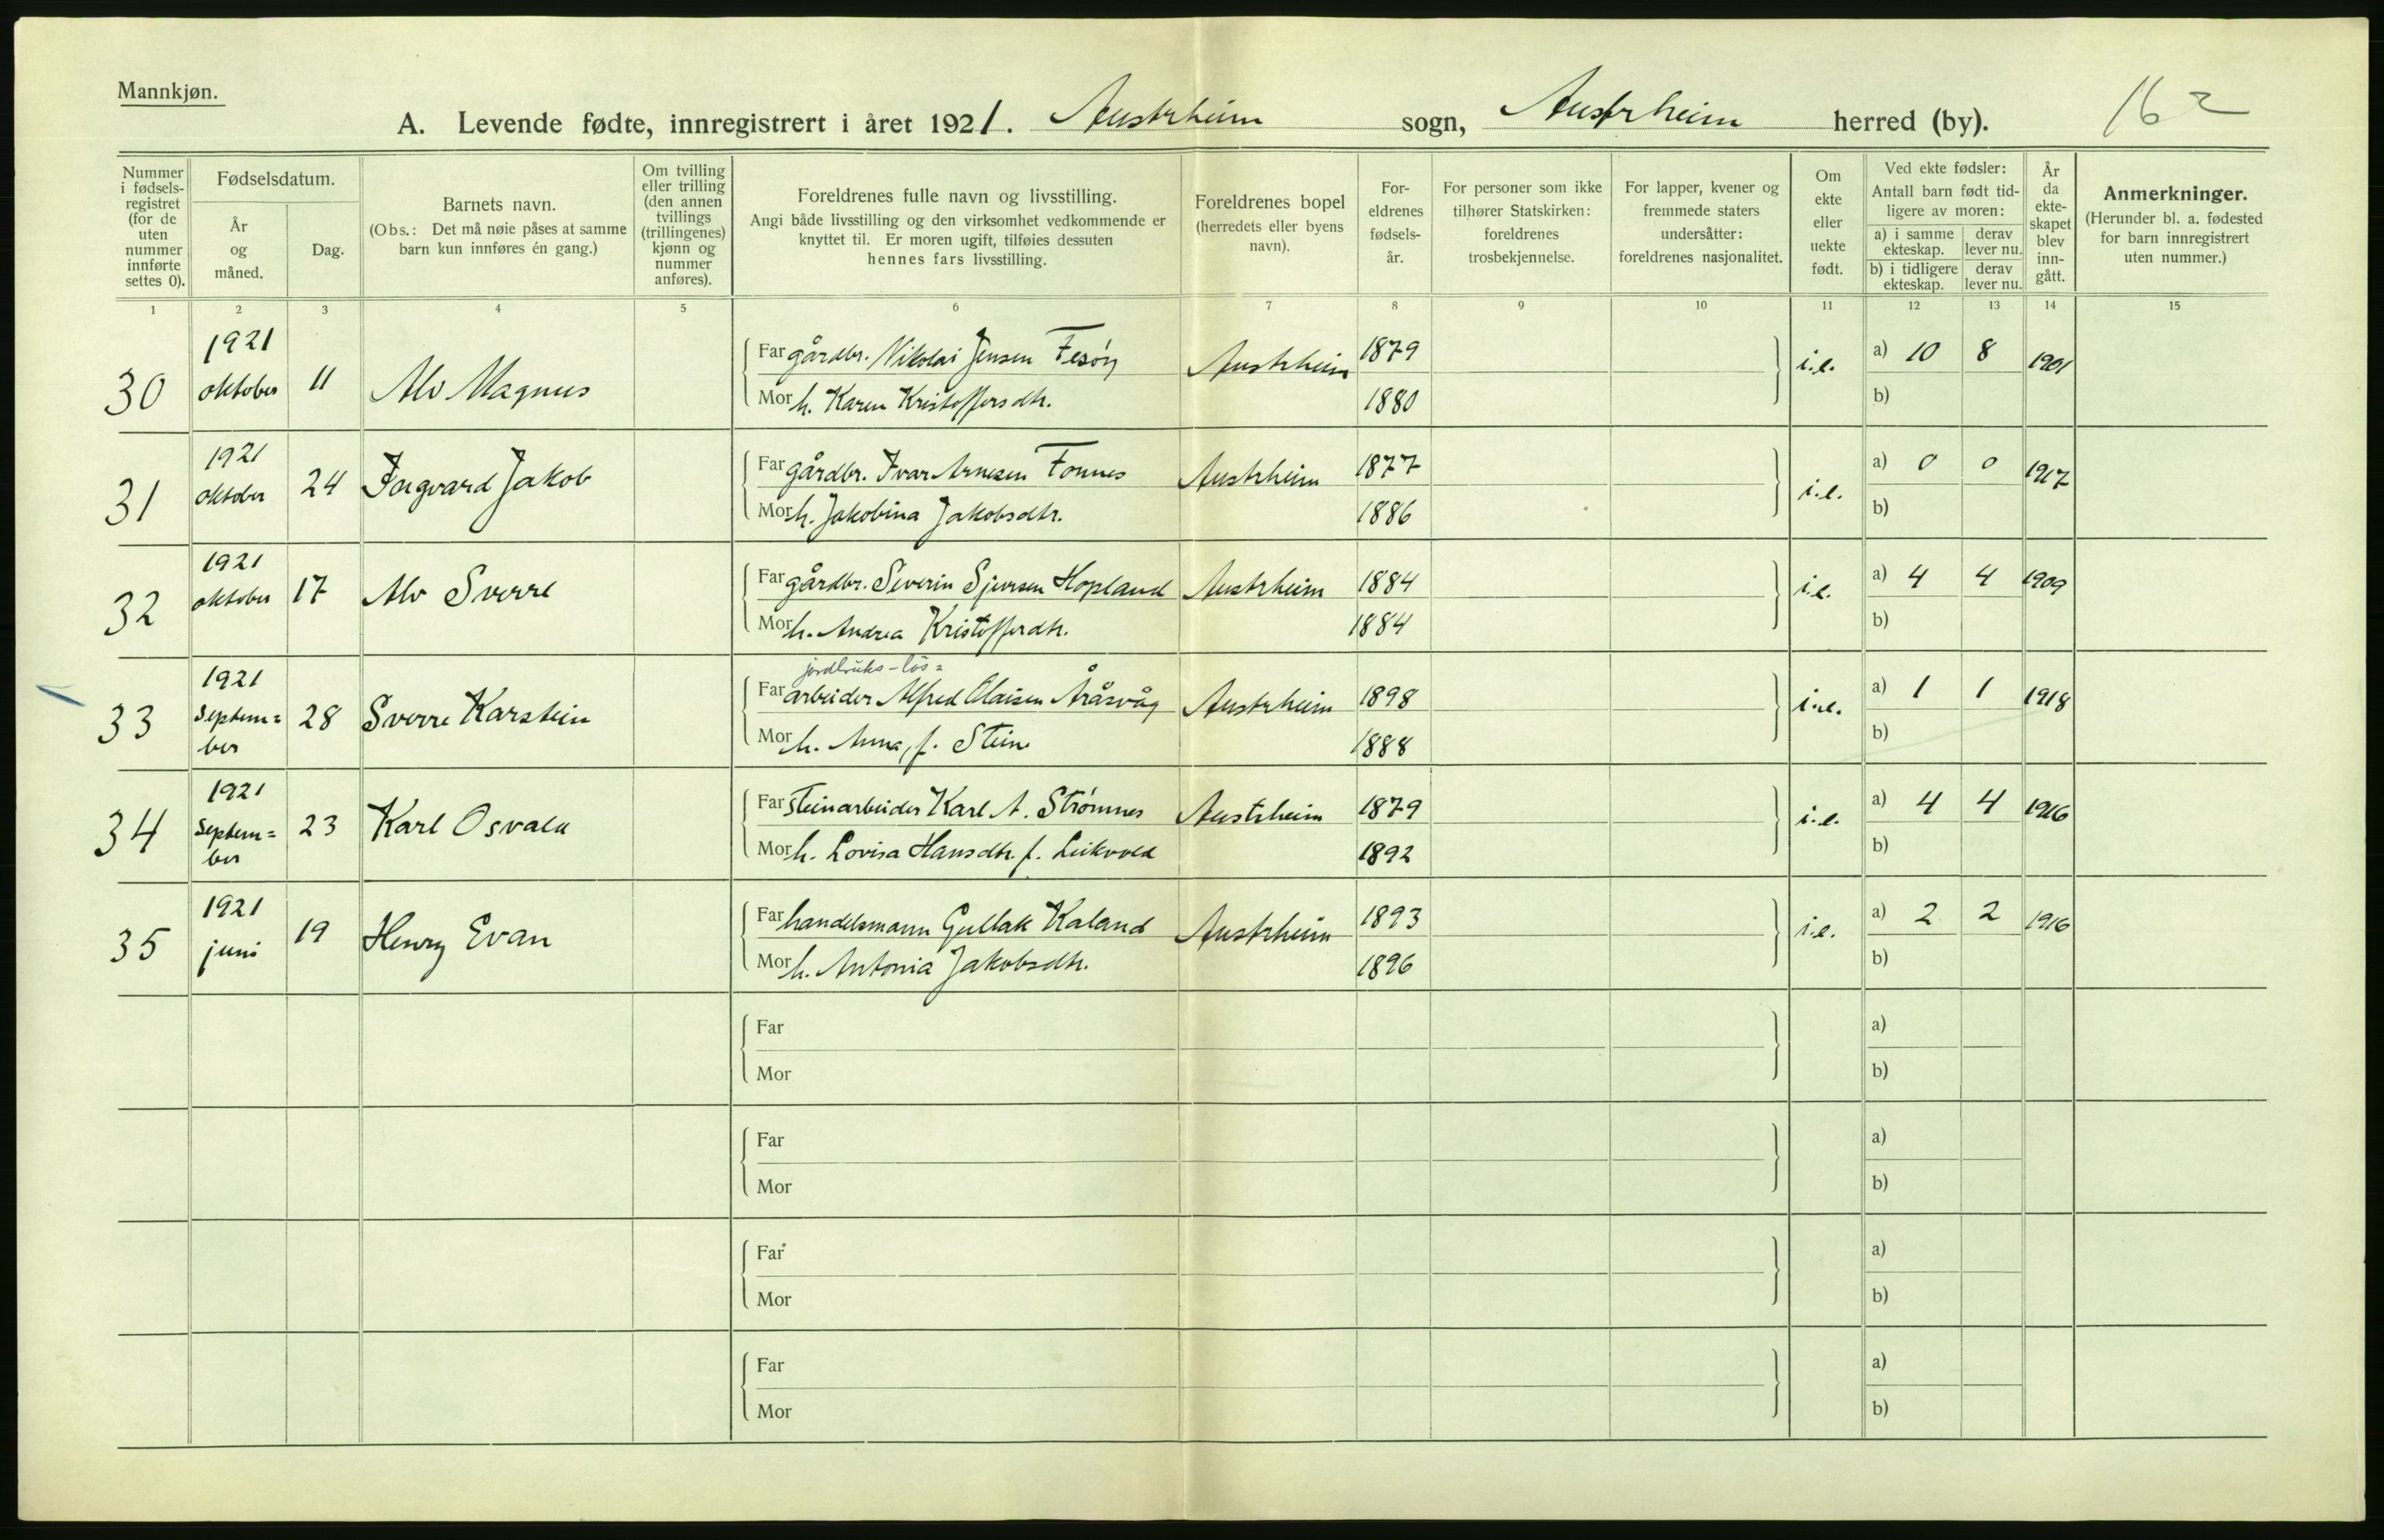 Mannkjøn.
A. Levende fødte, innregistrert i året 1921. Austrheim sogn, Austrheim herred (by). 162
Nummer i fødsels-registret (for de uten nummer innførte settes 0).
Fødselsdatum.
År og måned.
Dag.
Barnets navn.
(Obs.: Det må nøie påses at samme barn kun innføres én gang.)
Om tvilling eller trilling (den annen tvillings (trillingenes) kjønn og nummer anføres).
Foreldrenes fulle navn og livsstilling.
Angi både livsstilling og den virksomhet vedkommende er knyttet til. Er moren ugift, tilføies dessuten hennes fars livsstilling.
Foreldrenes bopel (herredets eller byens navn).
For-eldrenes fødsels-år.
For personer som ikke tilhører Statskirken: foreldrenes trosbekjennelse.
For lapper, kvener og fremmede staters undersåtter: foreldrenes nasjonalitet.
Om ekte eller uekte født.
Ved ekte fødsler:
Antall barn født tid-ligere av moren:
a) i samme ekteskap. derav lever nu.
b) i tidligere ekteskap. derav lever nu.
År da ekte-skapet blev inn-gått.
Anmerkninger.
(Herunder bl. a. fødested for barn innregistrert uten nummer.)
1 2 3 4 5 6 7 8 9 10 11 12 13 14 15
30 1921 oktober 11 Alv Magnus Far gårdbr. Nikolai Jensen Fesøy Austrheim 1879 i.e. a) 10 8 1901
Mor h. Karen Kristoffersdtr. 1880 b)
31 1921 oktober 24 Ingvard Jakob Far gårdbr. Ivar Arnesen Fonnes Austrheim 1877 i.e. a) 0 0 1917
Mor h. Jakobina Jakobsdtr. 1886 b)
32 1921 oktober 17 Alv Sverre Far gårdbr. Severin Sjursen Hopland Austrheim 1884 i.e. a) 4 4 1909
Mor h. Andrea Kristofferdtr. 1884 b)
jordbruks-løs=
33 1921 Septem=ber 28 Sverre Karstein Far arbeider Alfred Olaisen Åråsvåg Austrheim 1898 i.e. a) 1 1 1918
Mor h. Anna, f. Stein 1888 b)
34 1921 Septem=ber 23 Karl Osvald Far Steinarbeider Karl A. Strømnes Austrheim 1879 i.e. a) 4 4 1916
Mor h. Lovisa Hansdtr. f. Leikvold 1892 b)
35 1921 juni 19 Henry Evan Far handelsmann Gullak Kaland Austrheim 1893 i.e. a) 2 2 1916
Mor h. Antonia Jakobsdtr. 1896 b)
Far a)
Mor b)
Far a)
Mor b)
Far a)
Mor b)
Far a)
Mor b)